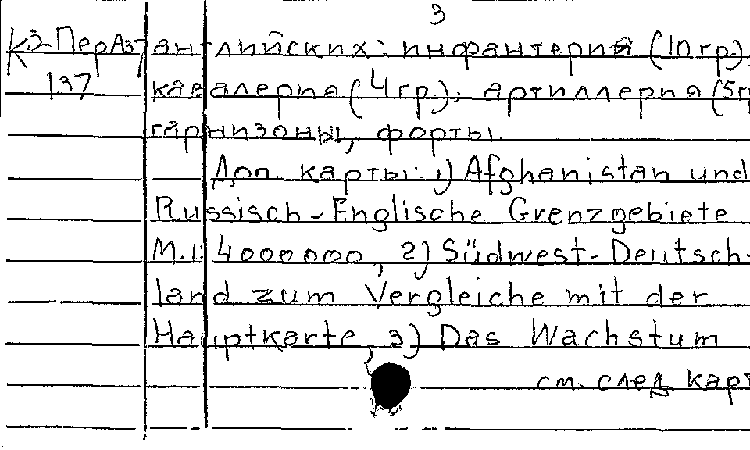 3
К3-ПерАз английских: инфантерия (10гр),
137 кавалерия (4гр.), артиллерия (5гр
гарнизоны, форты.
Доп. карты: 1) Afghanistan und
Russisch-Englische Grenzgebiete
M.1:4000000, 2) Südwest-Deutsch-
land zum Vergleiche mit der
Hauptkarte, 3) Das Wachstum
см. след. карт